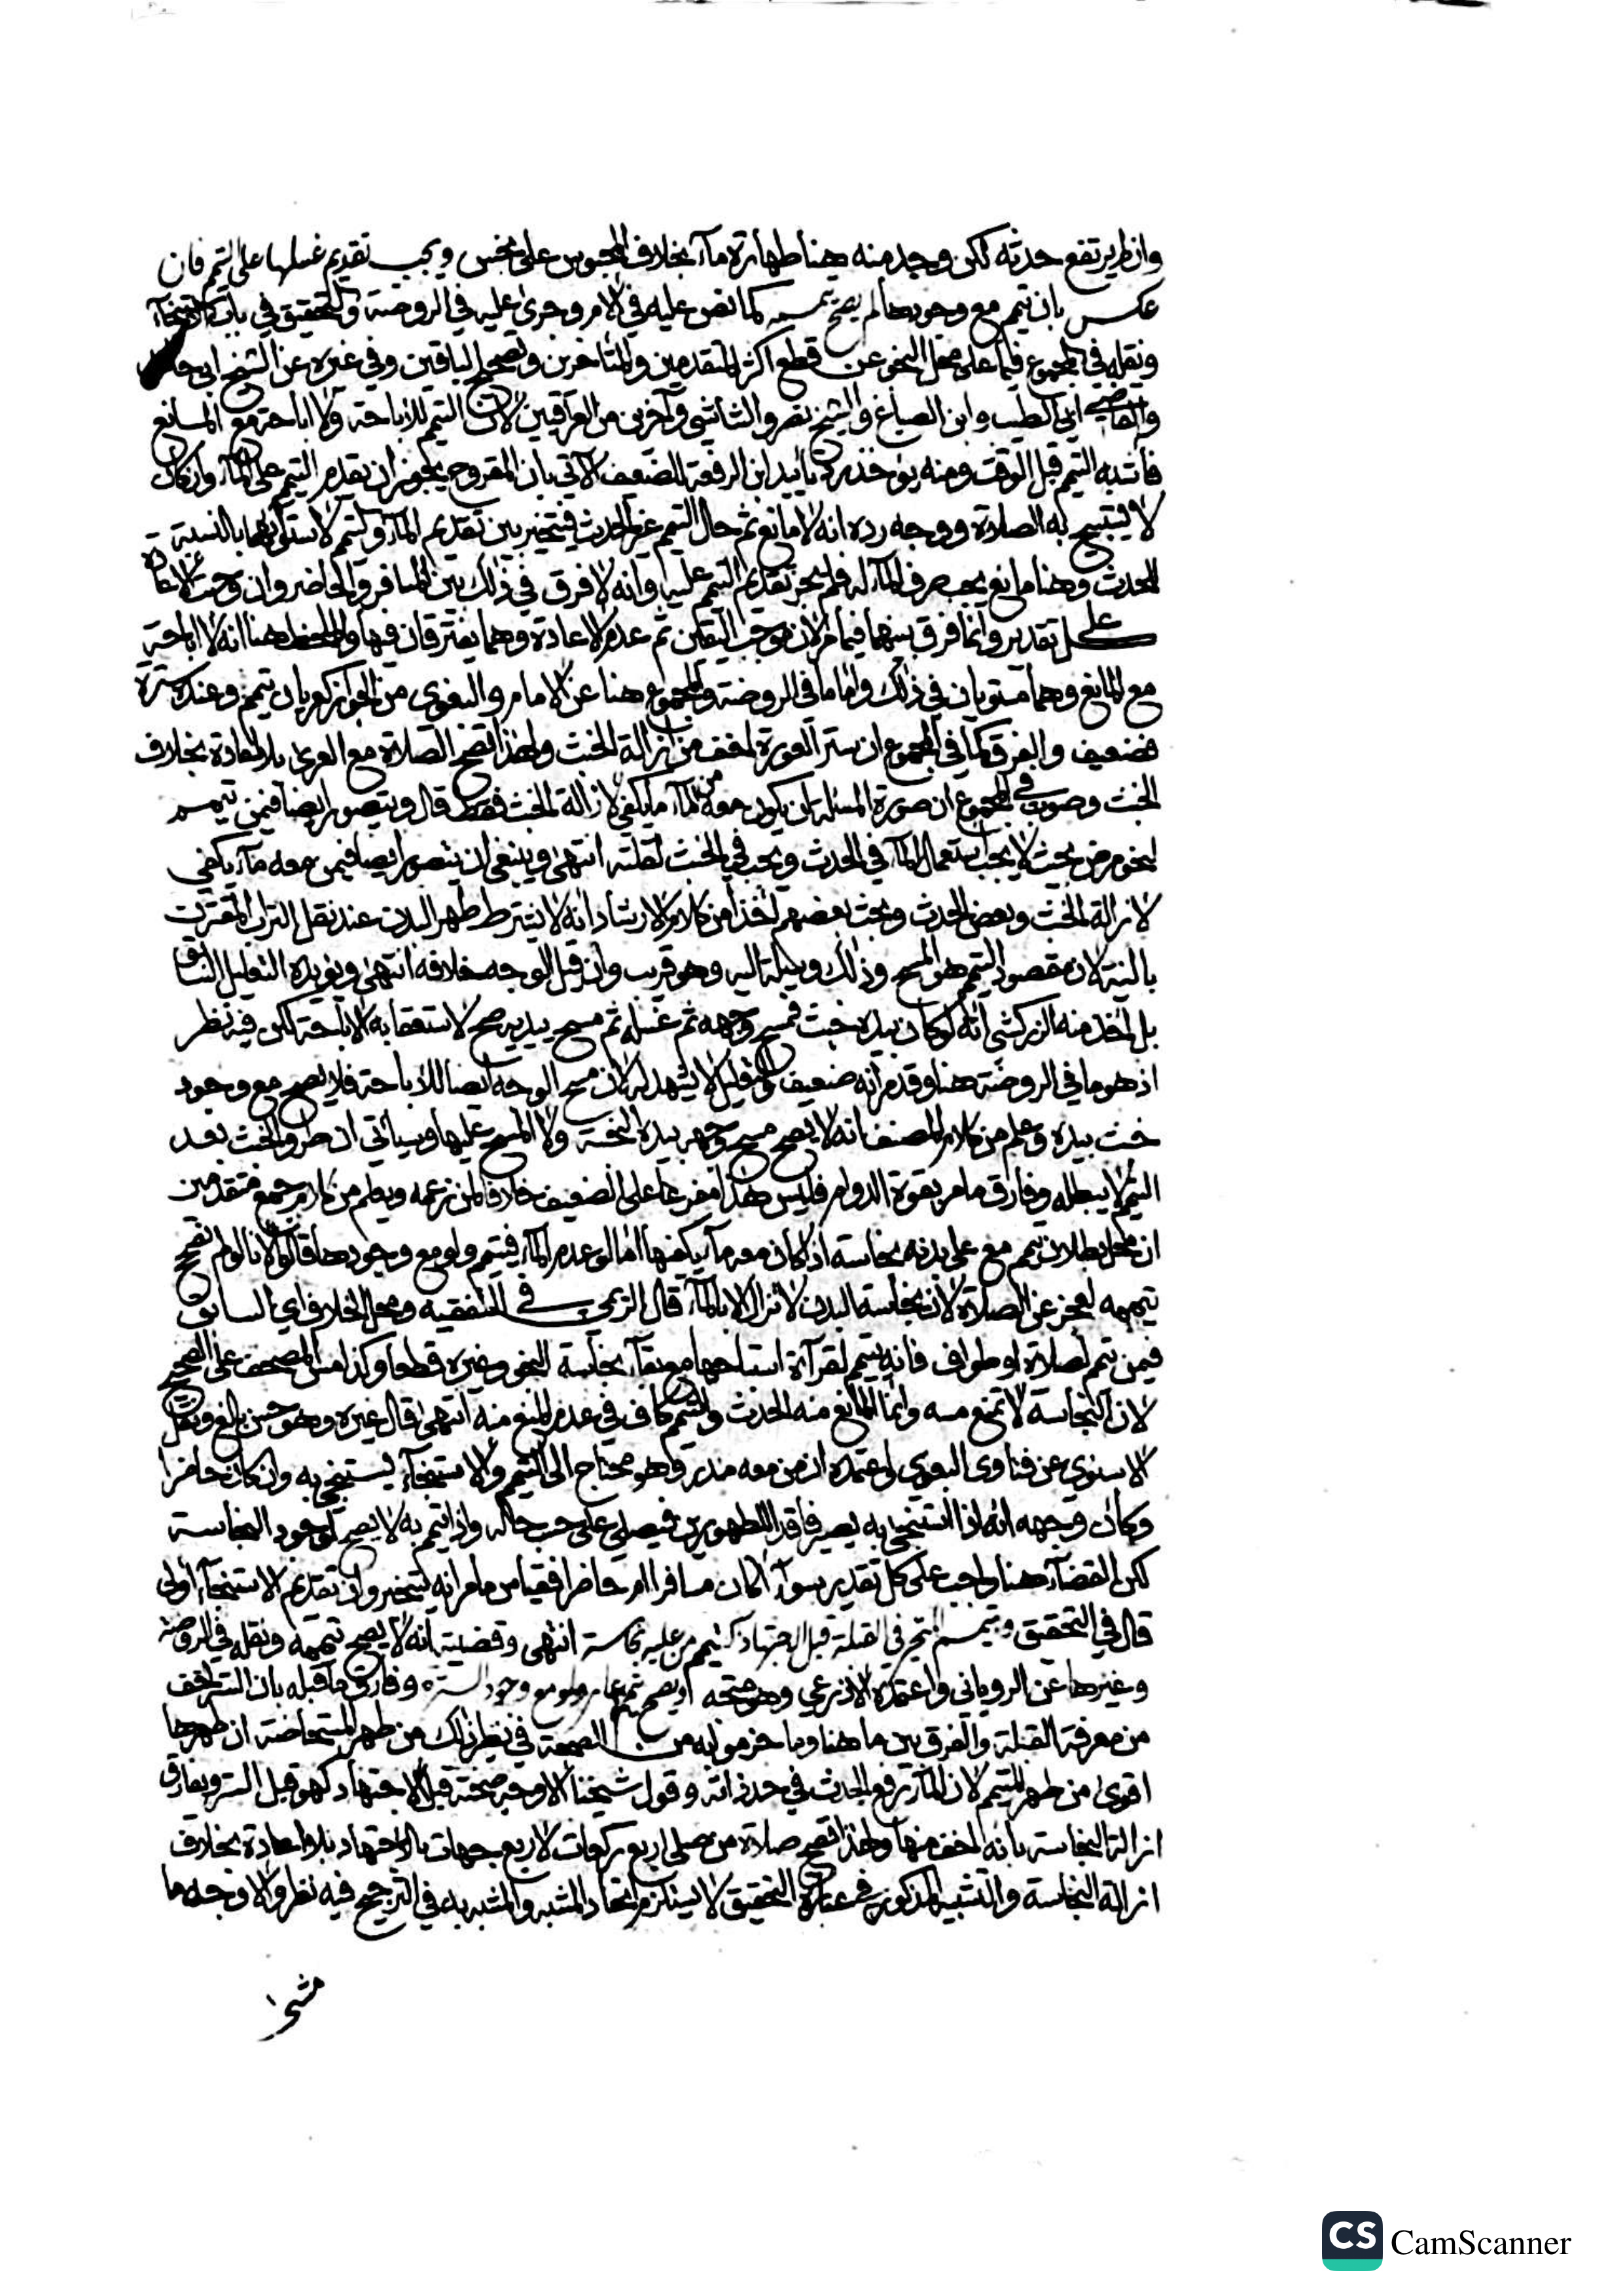 وان لم يرتفع حدثه لكن وجد منه هنا طهارة ماء بخلاف المحبوس على نجس ويجب تقديم غسلها على التيمم فان
عكس بان تيمم مع وجودها لم يصح تيممه كما نص عليه في الام وجرى عليه في الروضة والتحقيق في باب الاستنجاء
ونقله في المجموع فيما على محل النجو عن قطع اكثر المتقدمين والمتاخرين وتصحيح الباقين وفي غيره عن الشيخ ابي حامد
والقاضي ابي الطيب وابن الصباغ والشيخ نصر والشاشي وآخرين من العراقيين لان التيمم للاباحة ولا اباحة مع المانع
فاشبه التيمم قبل الوقت ومنه يؤخذ رد تأييد ابن الرفعة للضعف الآتي بان المقروح يجوز ان يقدم التيمم على الماء وان كان
لا يستبيح به الصلاة ووجه رده انه لا مانع ثم حال التيمم غير الحدث فيتخير بين تقديم الماء والتيمم لاستوائهما بالنسبة
للحدث وهنا مانع يجب صرف الماء له فلم يجز تقديم التيمم عليه وانه لا فرق في ذلك بين المسافر والحاضر وان وجبت الاعادة
على كل تقدير وانما فرق بينهما فيما مر لان موجب التعين ثم عدم الاعادة وهما يفترقان فيها والملحظ هنا انه لا اباحة
مع المانع وهما مستويان في ذلك واما ما في الروضة والمجموع هنا عن الامام والبغوي من الجواز كعريان تيمم وعنده سترة
فضعيف والفرق كما في المجموع ان ستر العورة اخف من ازالة الخبث ولهذا تصح الصلاة مع العري بلا اعادة بخلاف
الخبث وصوب في المجموع ان صورة المسئلة ان يكون معه من الماء ما يكفي لازالة الخبث فقط قال ويتصور ايضا فيمن تيمم
لنحو مرض بحيث لا يجب استعمال الماء في الحدث ويجب في الخبث لقلته انتهى وينبغي ان يتصور ايضا فيمن معه ماء يكفي
لازالة الخبث وبعض الحدث وبحث بعضهم اخذا من كلام الارشاد انه لا يشترط طهر البدن عند نقل التراب المقترن
بالنية لان مقصود التيمم هو المسح وذلك وسيلة اليه وهو قريب وان قيل الوجه خلافه انتهى ويؤيده التعليل السابق
بل اخذ منه الزركشي انه لو كان بيده خبث فمسح وجهه ثم غسله ثم مسح يديه صح لاستعقابه الاباحة لكن فيه نظر
اذ هو ما في الروضة هنا وقد مر انه ضعيف والتعليل لا يشهد له لان مسح الوجه ايضا للاباحة فلا يصح مع وجود
خبث بيده وعلم من كلام المصنف انه لا يصح مسح وجهه بيده النجسة ولا المسح عليها وسياتي ان طرو الخبث بعد
التيمم لا يبطله وفارق ما مر بقوة الدوام فليس هذا مفرعا على الضعيف خلافا لمن زعمه ويعلم من كلام جمع متقدمين
ان محل بطلان تيمم مع على بدنه نجاسة اذا كان معه ما يكفيها اما لو عدم الماء فيتيمم ولو مع وجودها قالوا لانا لو لم نصحح
تيممه لعجز عن الصلاة لان نجاسة البدن لا تزال الا بالماء قال الريمي في التفقيه ومحل الخلاف اي السابق
فيمن تيمم لصلاة او طواف فان تيمم لقراءة استباحها مع بقاء نجاسة النجو وغيره قطعا وكذا مس المصحف على الصحيح
لان النجاسة لا تمنع مسه وانما المانع منه الحدث والتيمم كاف في عدم المنع منه انتهى قال غيره وهو حسن بالغ ونقل
الاسنوي عن فتاوى البغوي واعتمده ان من معه مدر وهو محتاج الى التيمم والاستنجاء يستنجي به وان كان حاضرا
وكأن وجهه انه اذا استنجى به يصير فاقد الطهورين فيصلي على حسب حاله واذا تيمم به لا يصح لوجود النجاسة
لكن القضاء هنا واجب على كل تقدير سواء أكان مسافرا ام حاضرا فقياس ما مر انه يتخير وان تقديم الاستنجاء اولى
قال في التحقيق وتيمم المتحير في القبلة قبل اجتهاد كتيمم من عليه نجاسة انتهى وقضيته انه لا يصح تيممه ونقله في الروضة
وغيرها عن الروياني واعتمده الاذرعي وهو متجه او يصح تيمم عار ولو مع وجود السترة وفارق ما قبله بان الستر اخف
من معرفة القبلة والفرق بين ما هنا وما جزموا به من الصحة في نظير ذلك من طهر المستحاضة ان طهرها
اقوى من طهر المتيمم لان الماء يرفع الحدث في حد ذاته وقول شيخنا الاوجه صحته قبل الاجتهاد كهو قبل الستر ويفارق
ازالة النجاسة بانه اخف منها ولهذا تصح صلاة من صلى اربع ركعات لاربع جهات بالاجتهاد بلا اعادة بخلاف
ازالة النجاسة والتشبيه المذكور في عبارة التحقيق لا يستلزم اتحاد المشبه والمشبه به في الترجيح فيه نظر والاوجه ما
CS CamScanner